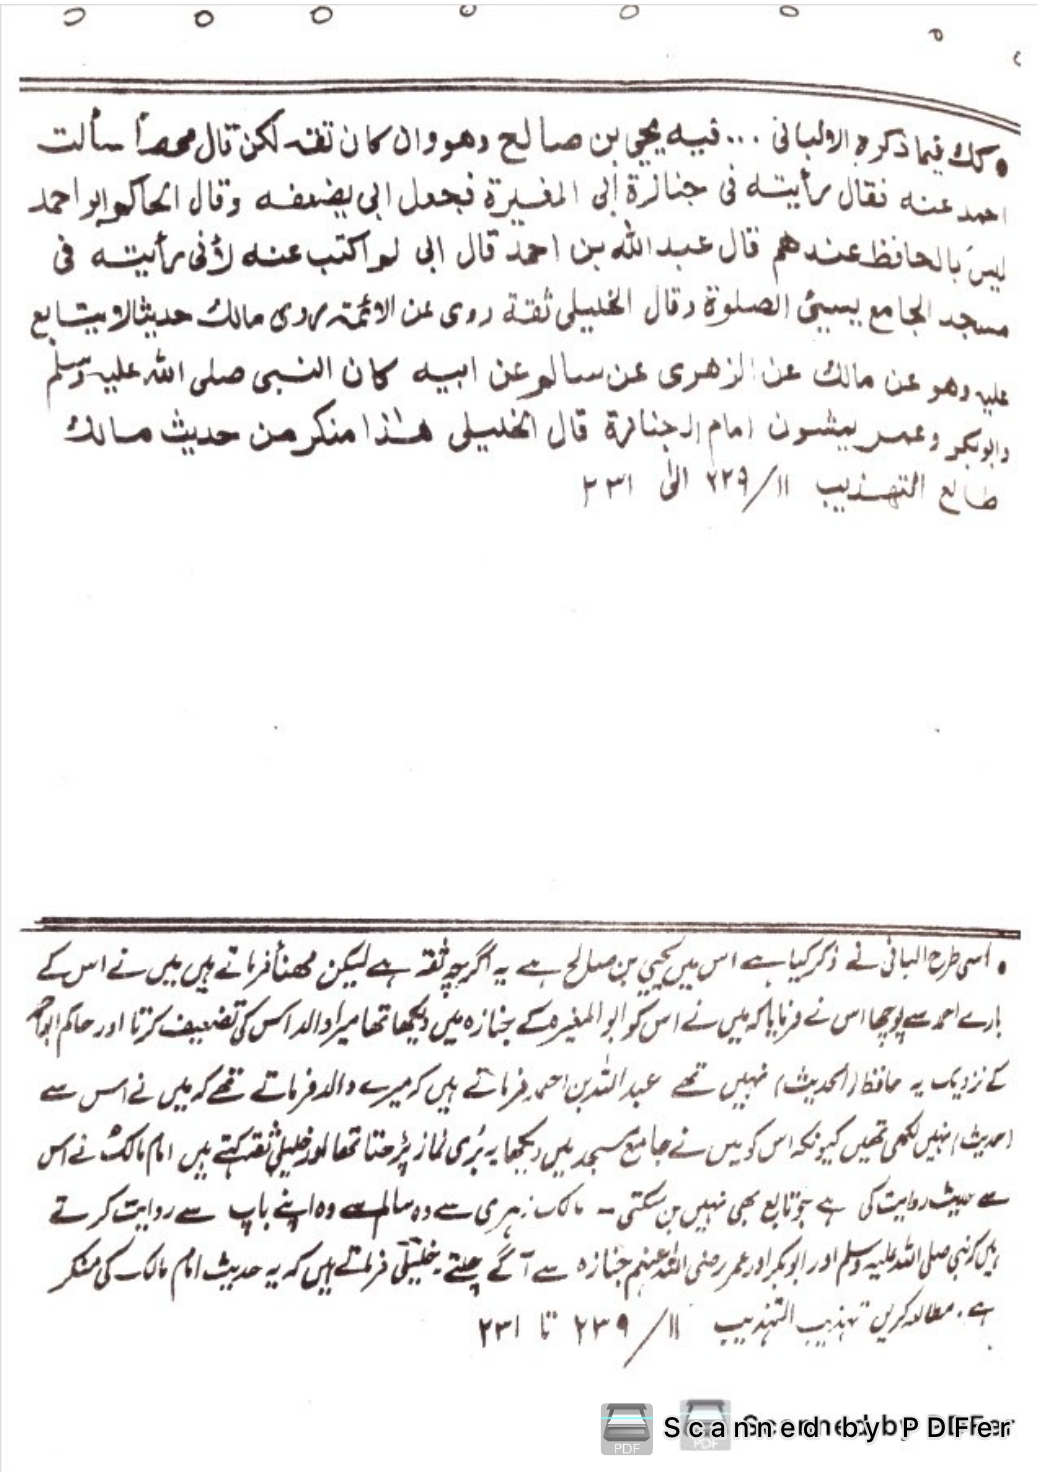 • كك فيما ذكره الالبانى ... فيه يحيى بن صالح وهو وان كان ثقه لكن قال مهنأ سألت
احمد عنه فقال رأيته فى جنازة ابى المغيرة فجعل ابى يضعفه وقال الحاكم ابو احمد
ليس بالحافظ عندهم قال عبد الله بن احمد قال ابى لم اكتب عنه لأنى رأيته فى
مسجد الجامع يسيئ الصلوة وقال الخليلى ثقة روى عن الائمة يروى عن مالك حديثا لا يتابع
عليه وهو عن مالك عن الزهرى عن سالم عن ابيه كان النبى صلى الله عليه وسلم
وابوبكر وعمر يمشون امام الجنازة قال الخليلى هذا منكر من حديث مالك
طالع التهذيب ١١/ ٢٢٩ الى ٢٣١
• اسی طرح البانی نے ذکر کیا ہے اس میں یحییٰ بن صالح ہے یہ اگرچہ ثقہ ہے لیکن مھنأ فرماتے ہیں میں نے اس کے
بارے احمد سے پوچھا اس نے فرمایا کہ میں نے اس کو ابو المغیرہ کے جنازہ میں دیکھا تھا میرا والد اس کی تضعیف کرتا اور حاکم ابو احمد
کے نزدیک یہ حافظ (الحدیث) نہیں تھے عبد اللہ بن احمد فرماتے ہیں کہ میرے والد فرماتے تھے کہ میں نے اس سے
(حدیث) نہیں لکھی تھیں کیونکہ اس کو میں نے جامع مسجد میں دیکھا یہ بُری نماز پڑھتا تھا اور خلیلی ثقہ کہتے ہیں امام مالک نے اس
سے حدیث روایت کی ہے جو تابع بھی نہیں بن سکتی - مالک زہری سے وہ سالم سے وہ اپنے باپ سے روایت کرتے
ہیں کہ نبی صلی اللہ علیہ وسلم اور ابو بکر اور عمر رضی اللہ عنہم جنازہ سے آگے چلتے خلیلی فرماتے ہیں کہ یہ حدیث امام مالک کی منکر
ہے۔ مطالعہ کریں تہذیب التہذیب ١١/ ٢٣٩ تا ٢٣١
Scanned by PDFer